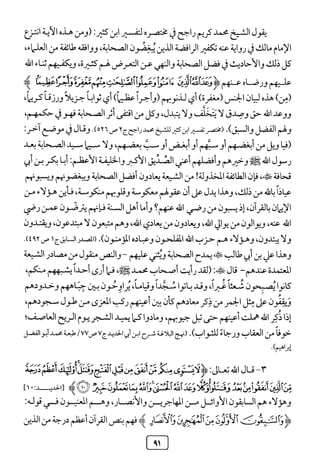 يقول الشيخ محمد كريم راجح في مختصره لتفسير ابن كثير: (ومن هذه الآية انتزع
الإمام مالك في رواية عنه تكفير الرافضة الذين يُبغضُون الصحابة، ووافقه طائفة من العلماء،
كل ذلك والأحاديث في فضل الصحابة والنهي عن التعرض لهم كثيرة، ويكفيهم ثناء الله
عليهم ورضاه عنهم ﴿وَعَدَ اللَّهُ الَّذِينَ ءَامَنُوا وَعَمِلُوا الصَّالِحَاتِ مِنْهُم مَّغْفِرَةً وَأَجْرًا عَظِيمًا﴾
(مِن) هذه لبيان الجنس (مغفرة) أي لذنوبهم (وأجراً عظيماً) أي ثواباً جزيلاً ورزقاً كريماً،
ووعد الله حق وصدق لا يَتَخلَّف ولا يتبدل، وكل من اقتفى أثر الصحابة فهو في حكمهم،
ولهم الفضل والسبق). (مختصر تفسير ابن كثير للشيخ محمد راجح ج٢ ص٥٢٦). وقال في موضع آخر:
(فيا ويل من أبغضهم أو سبَّهم أو أبغض أو سبَّ بعضهم، ولا سيما سيد الصحابة بعد
رسول الله ﷺ وخيرهم وأفضلهم أعني الصِّدِّيق الأكبر والخليفة الأعظم: أبا بكر بن أبي
قحافة، فإن الطائفة المخذولة! من الشيعة يعادون أفضل الصحابة ويبغضونهم ويسبونهم
عياذاً بالله من ذلك، وهذا يدل على أن عقولهم معكوسة وقلوبهم منكوسة، فأين هؤلاء من
الإيمان بالقرآن، إذ يسبون من رضي الله عنهم؟ وأما أهل السنة فإنهم يترضَّون عمن رضي
الله عنه، ويوالون من يوالي الله، ويعادون من يعادي الله، وهم متبعون لا مبتدعون، ويقتدون
ولا يبتدون، وهؤلاء هم حزب الله المفلحون وعباده المؤمنون). (المصدر السابق ج١ ص٤٩٢).
وهذا علي بن أبي طالب يمدح الصحابة ويُثني عليهم - والنص منقول من مصادر الشيعة
المعتمدة عندهم - قال: (لقد رأيت أصحاب محمد ﷺ، فما أرى أحداً يشبههم منكم،
كانوا يُصبحون شعثاً غُبراً، وقد باتوا سُجَّداً وقياماً، يُراوِحُون بين جباههم وخدودهم
ويَقِفُون على مِثل الجمر من ذِكر معادهم كأن بين أعينهم ركب المعزى من طول سجودهم،
إذا ذُكِر الله هملت أعينهم حتى تبل جيوبهم، ومادوا كما يميد الشجر يوم الريح العاصف؛
خوفاً من العقاب ورجاءً للثواب). (نهج البلاغة شرح ابن أبي الحديد ج٧ ص٧٧ / طبعة محمد أبو الفضل
إبراهيم).
٣- قال الله تعالى: ﴿لَا يَسْتَوِي مِنكُم مَّنْ أَنفَقَ مِن قَبْلِ الْفَتْحِ وَقَاتَلَ أُولَٰئِكَ أَعْظَمُ دَرَجَةً
مِّنَ الَّذِينَ أَنفَقُوا مِن بَعْدُ وَقَاتَلُوا وَكُلًّا وَعَدَ اللَّهُ الْحُسْنَىٰ وَاللَّهُ بِمَا تَعْمَلُونَ خَبِيرٌ ۝﴾ [الحديد: ١٠]
وهؤلاء هم السابقون الأوائل من المهاجرين والأنصار، وهم المعنيون في قوله:
﴿وَالسَّابِقُونَ الْأَوَّلُونَ مِنَ الْمُهَاجِرِينَ وَالْأَنصَارِ﴾ فهم بنص القرآن أعظم درجة من الذين
٩١